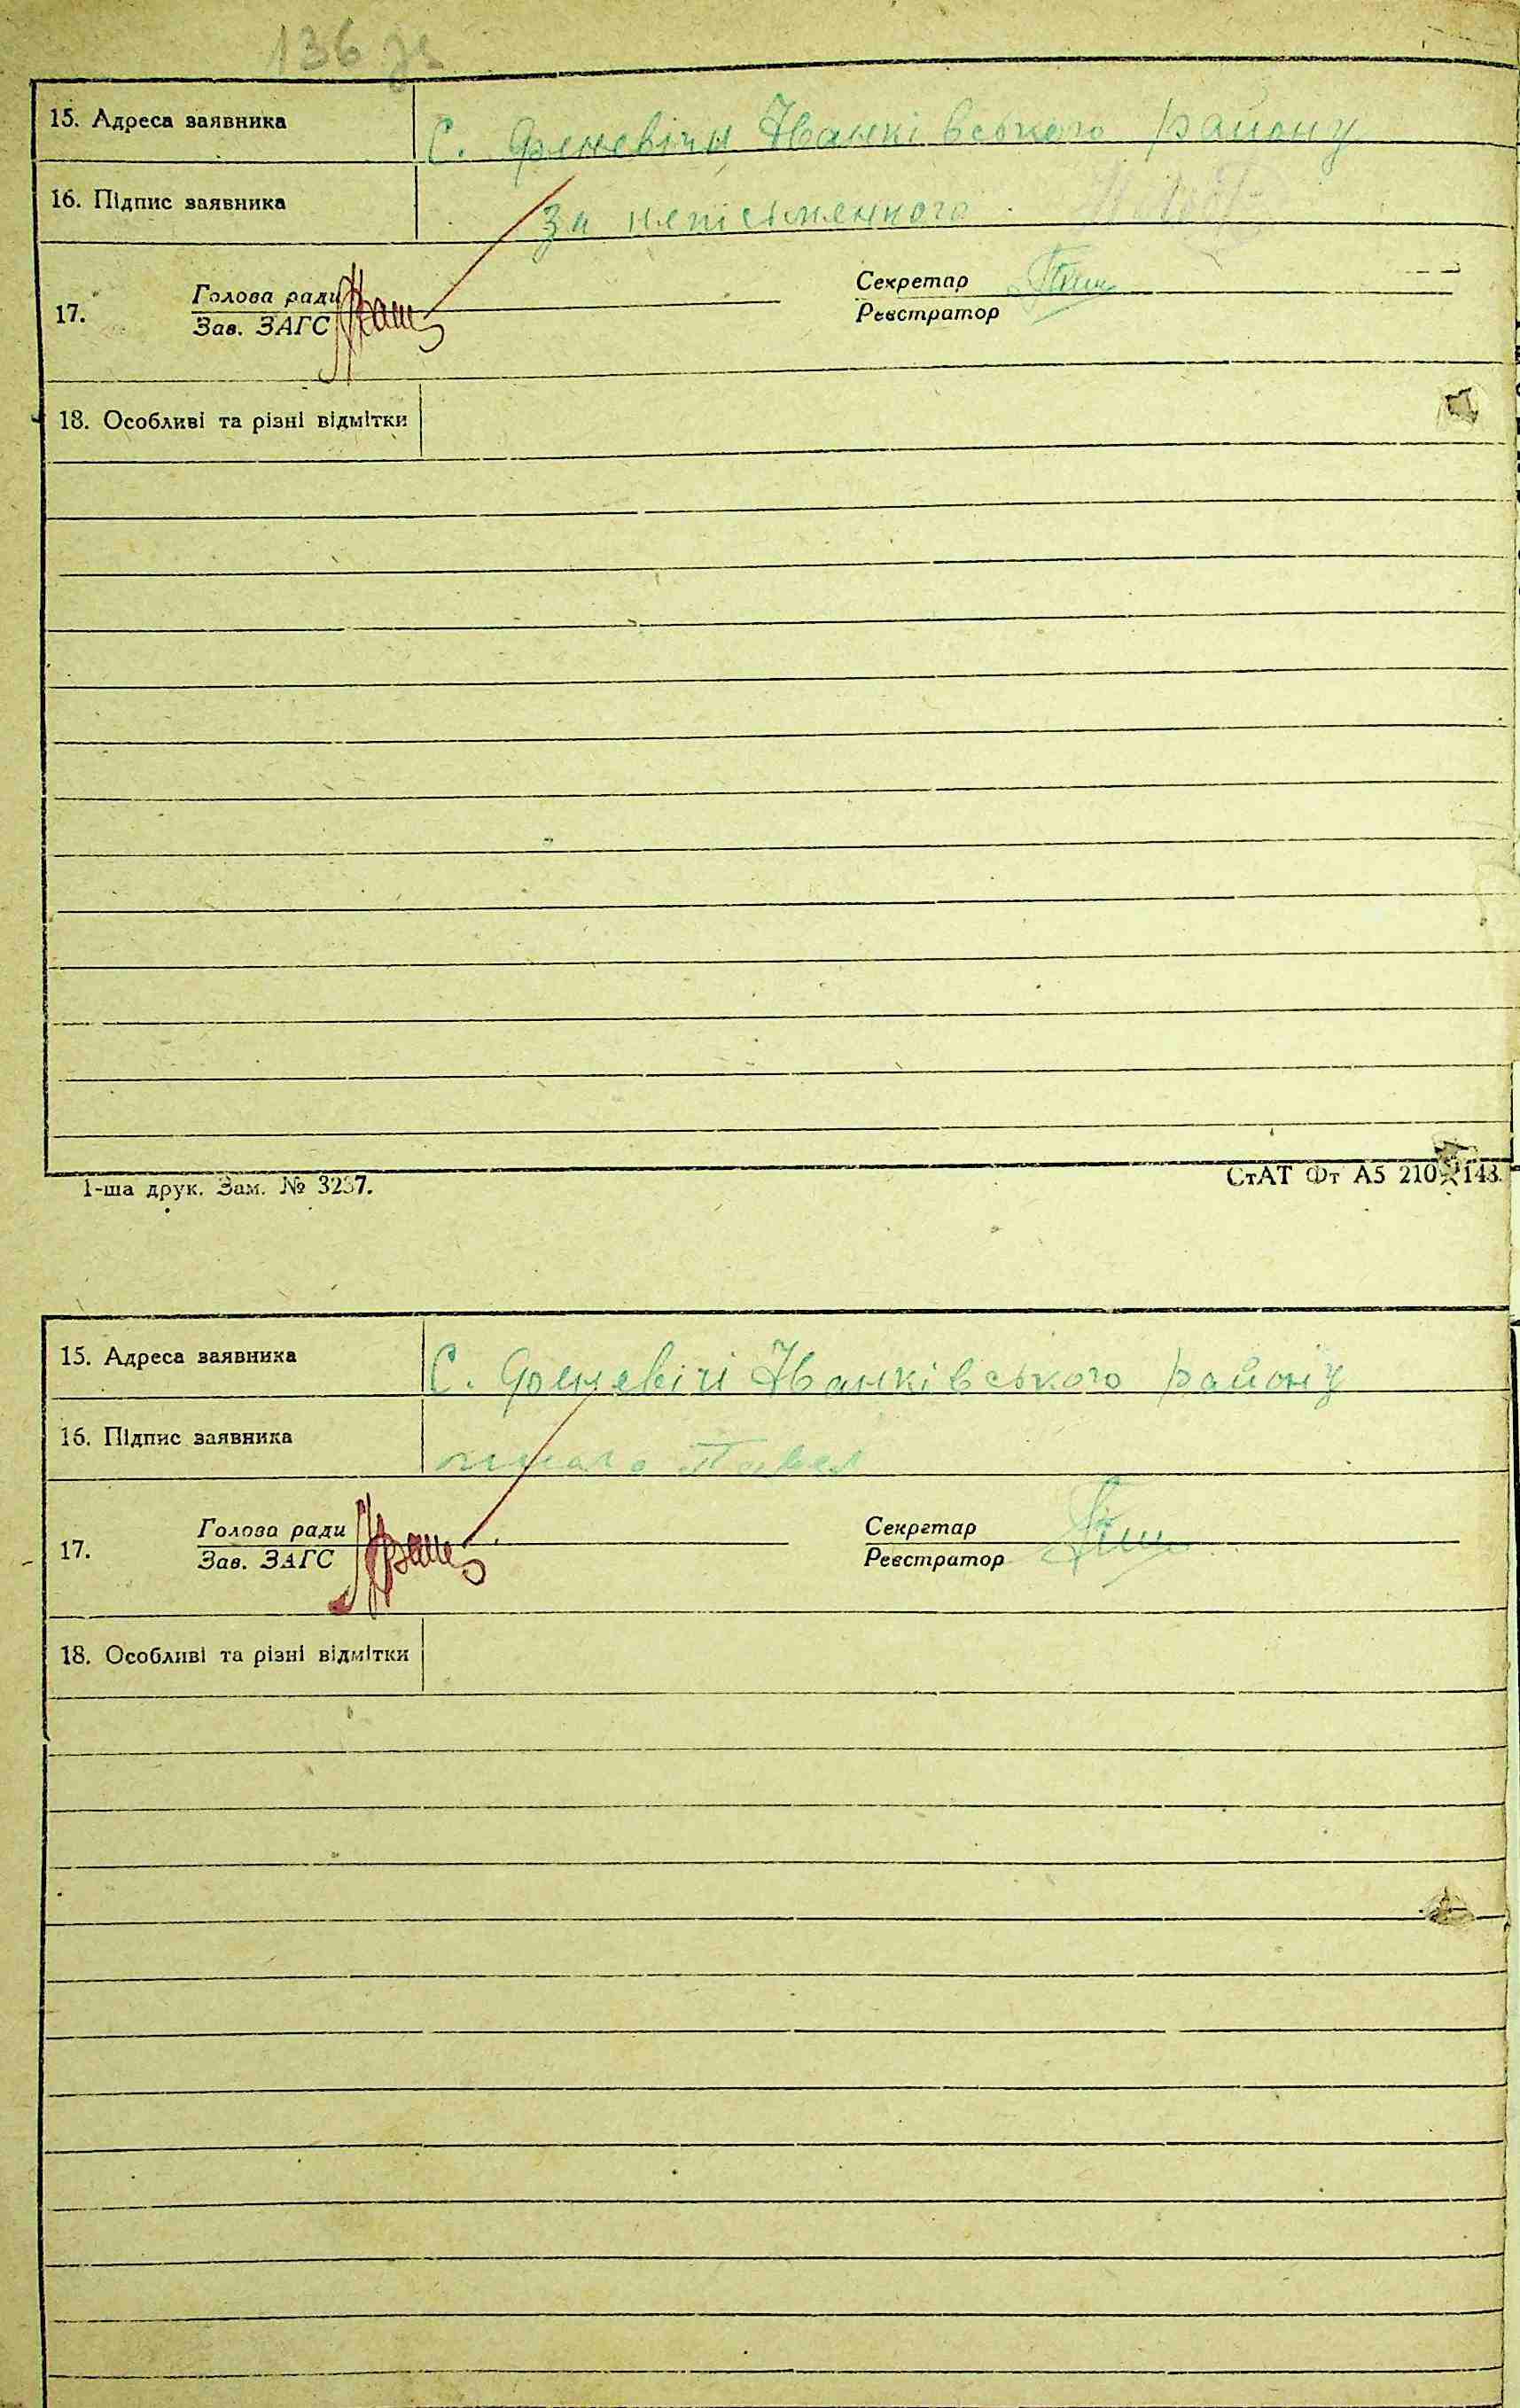 136 зв
15. Адреса заявника С. Феневічи Іванківського району
16. Підпис заявника За неписьменного
Голова ради Секретар
17.
Зав. ЗАГС Реєстратор
18. Особливі та різні відмітки
1-ша друк. Зам. № 3237. СтАТ Фт А5 210 143.
15. Адреса заявника С. Феневічі Іванківського району
16. Підпис заявника Павел
Голова ради Секретар
17.
Зав. ЗАГС Реєстратор
18. Особливі та різні відмітки